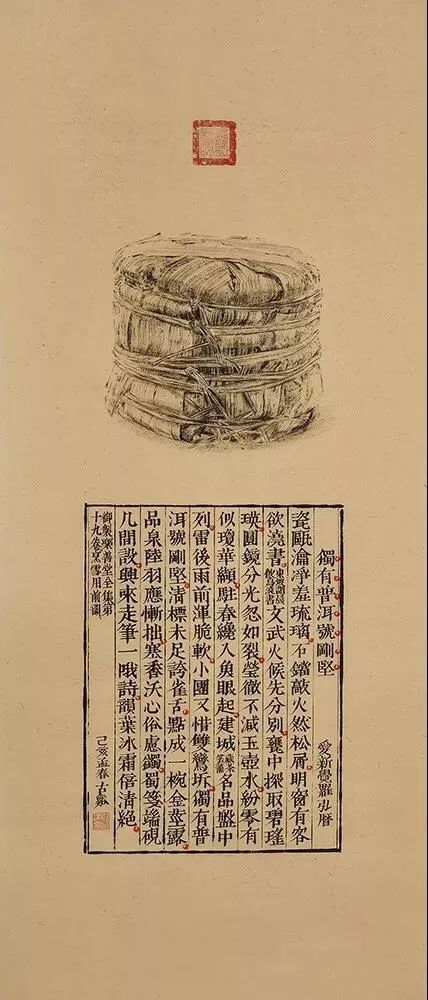 獨有普洱號剛堅　愛新覺羅弘曆
瓷甌瀹凈羞琉璃石鐺敲火然松屑明窗有客
欲澆書東坡謂晨飲為澆書文武火候先分別甕中探取碧瑤
瑛圓鏡分光忽如裂瑩徹不減玉壺氷紛零有
似瓊華纈駐春纔入魚眼起建城藏茶箬籠名品盤中
列雷後雨前渾脆軟小團又惜雙鸞坼獨有普
洱號剛堅清標未足誇雀舌點成一椀金莖露
品泉陸羽應慚拙寒香沃心俗慮蠲蜀箋端硯
几間設興來走筆一哦詩韻葉冰霜倍清絕
御製樂善堂全集第
十九卷烹雪用前韻
己亥孟春古谿